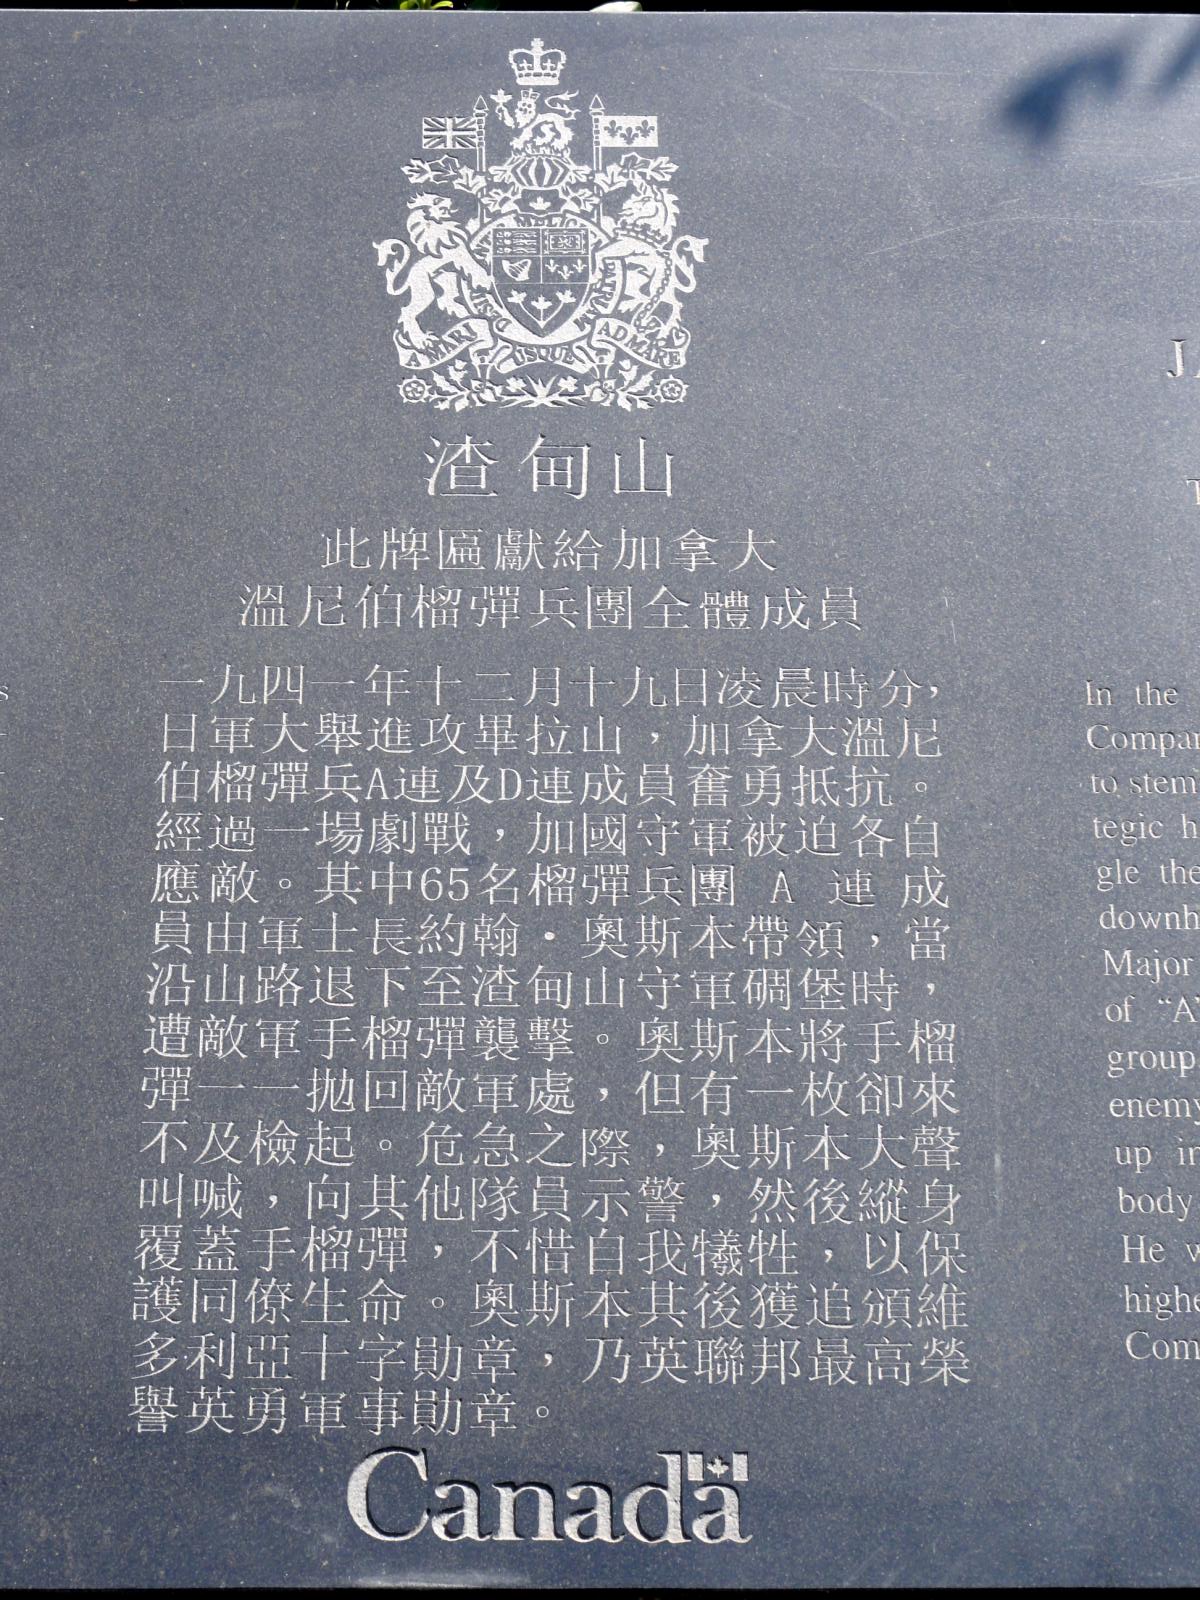 A MARI USQUE AD MARE
渣甸山
此牌匾獻給加拿大
溫尼伯榴彈兵團全體成員
一九四一年十二月十九日凌晨時分,
日軍大舉進攻畢拉山，加拿大溫尼
伯榴彈兵A連及D連成員奮勇抵抗。
經過一場劇戰，加國守軍被迫各自
應敵。其中65名榴彈兵團 A 連 成
員由軍士長約翰・奧斯本帶領，當
沿山路退下至渣甸山守軍碉堡時，
遭敵軍手榴彈襲擊。奧斯本將手榴
彈一一拋回敵軍處，但有一枚卻來
不及檢起。危急之際，奧斯本大聲
叫喊，向其他隊員示警，然後縱身
覆蓋手榴彈，不惜自我犧牲，以保
護同僚生命。奧斯本其後獲追頒維
多利亞十字勛章，乃英聯邦最高榮
譽英勇軍事勛章。
Canada
In the
to stem
tegic
gle the
Major
of “A
group
enemy
up
body
He